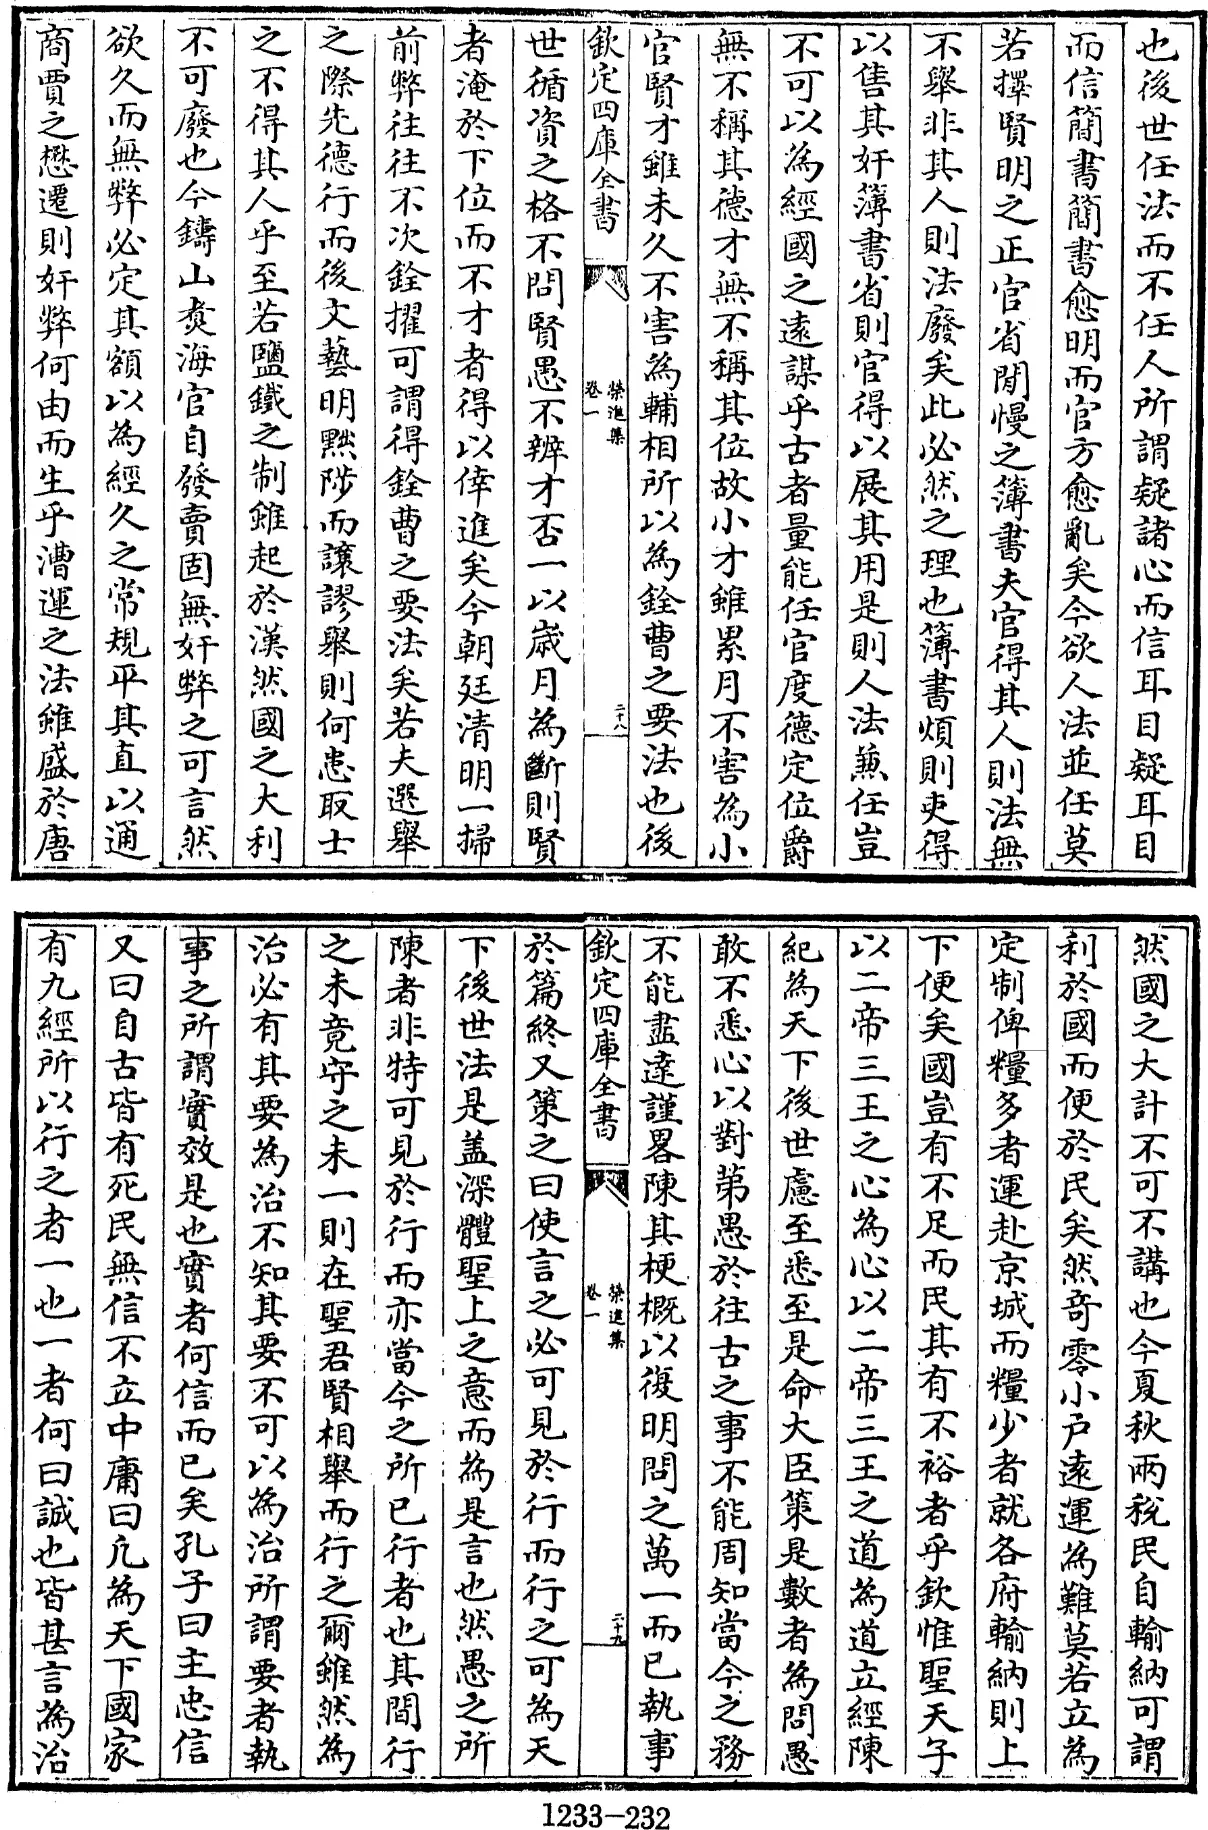 也後世任法而不任人所謂疑諸心而信耳目疑耳目
而信簡書簡書愈明而官方愈亂矣今欲人法並任莫
若擇賢明之正官省閒慢之簿書夫官得其人則法無
不舉非其人則法廢矣此必然之理也簿書煩則吏得
以售其奸簿書省則官得以展其用是則人法兼任豈
不可以為經國之遠謀乎古者量能任官度德定位爵
無不稱其德才無不稱其位故小才雖累月不害為小
官賢才雖未久不害為輔相所以為銓曹之要法也後
欽定四庫全書
榮進集
卷一
二十八
世循資之格不問賢愚不辨才否一以歳月為斷則賢
者淹於下位而不才者得以倖進矣今朝廷清明一掃
前弊往往不次銓擢可謂得銓曹之要法矣若夫選舉
之際先德行而後文藝明黜陟而讓謬舉則何患取士
之不得其人乎至若鹽鐵之制雖起於漢然國之大利
不可廢也今鑄山煑海官自發賣固無奸弊之可言然
欲久而無弊必定其額以為經久之常規平其直以通
商賈之懋遷則奸弊何由而生乎漕運之法雖盛於唐
然國之大計不可不講也今夏秋兩稅民自輸納可謂
利於國而便於民矣然竒零小户遠運為難莫若立為
定制俾糧多者運赴京城而糧少者就各府輸納則上
下便矣國豈有不足而民其有不裕者乎欽惟聖天子
以二帝三王之心為心以二帝三王之道為道立經陳
紀為天下後世慮至悉至是命大臣策是數者為問愚
敢不悉心以對第愚於往古之事不能周知當今之務
不能盡達謹畧陳其梗概以復明問之萬一而已執事
欽定四庫全書
榮進集
卷一
二十九
於篇終又策之曰使言之必可見於行而行之可為天
下後世法是盖深體聖上之意而為是言也然愚之所
陳者非特可見於行而亦當今之所已行者也其間行
之未竟守之未一則在聖君賢相舉而行之爾雖然為
治必有其要為治不知其要不可以為治所謂要者執
事之所謂實效是也實者何信而已矣孔子曰主忠信
又曰自古皆有死民無信不立中庸曰凢為天下國家
有九經所以行之者一也一者何曰誠也皆甚言為治
1233-232